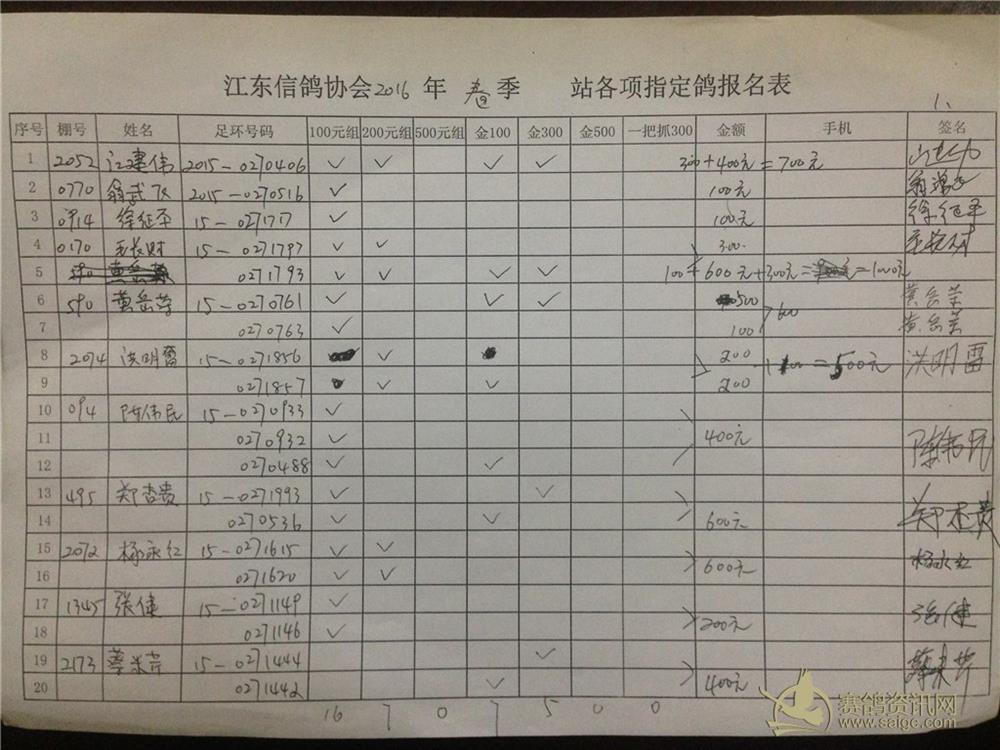 江东信鸽协会2016年 春季 站各项指定鸽报名表
1、
序号 棚号 姓名 足环号码 100元组 200元组 500元组 金100 金300 金500 一把抓300 金额 手机 签名
1 2052 江建伟 2015-0270406 ✓ ✓ ✓ ✓ 300+400元=700元
2 0770 翁武 2015-0270516 ✓ 100元
3 0914 徐征平 15-0271717 ✓ 100元 徐征平
4 0170 毛长财 15-0271797 ✓ ✓ 300 毛长财
5 0271793 ✓ ✓ ✓ ✓ 100+600元+300元= =1000元
6 590 黄岳芳 15-0270761 ✓ ✓ ✓ 500 黄岳芳
7 0270763 ✓ 100 >600 黄岳芳
8 2074 洪明雷 15-0271856 ✓ 200 =500元 洪明雷
9 0271857 ✓ ✓ 200
10 094 陈伟民 15-0270933 ✓
11 0270932 ✓ 400元 陈伟民
12 0270488 ✓ ✓
13 495 郑杏贵 15-0271993 ✓ ✓
14 0270536 ✓ ✓ 600元 郑杏贵
15 2072 杨永红 15-0271615 ✓ ✓
16 0271620 ✓ ✓ 600元 杨永红
17 1345 张健 15-0271149 ✓
18 0271146 ✓ 200元 张健
19 2173 15-0271444 ✓
20 0271442 ✓ 400元
16 7 0 7 5 0 0
赛鸽资讯网
www.saigc.com